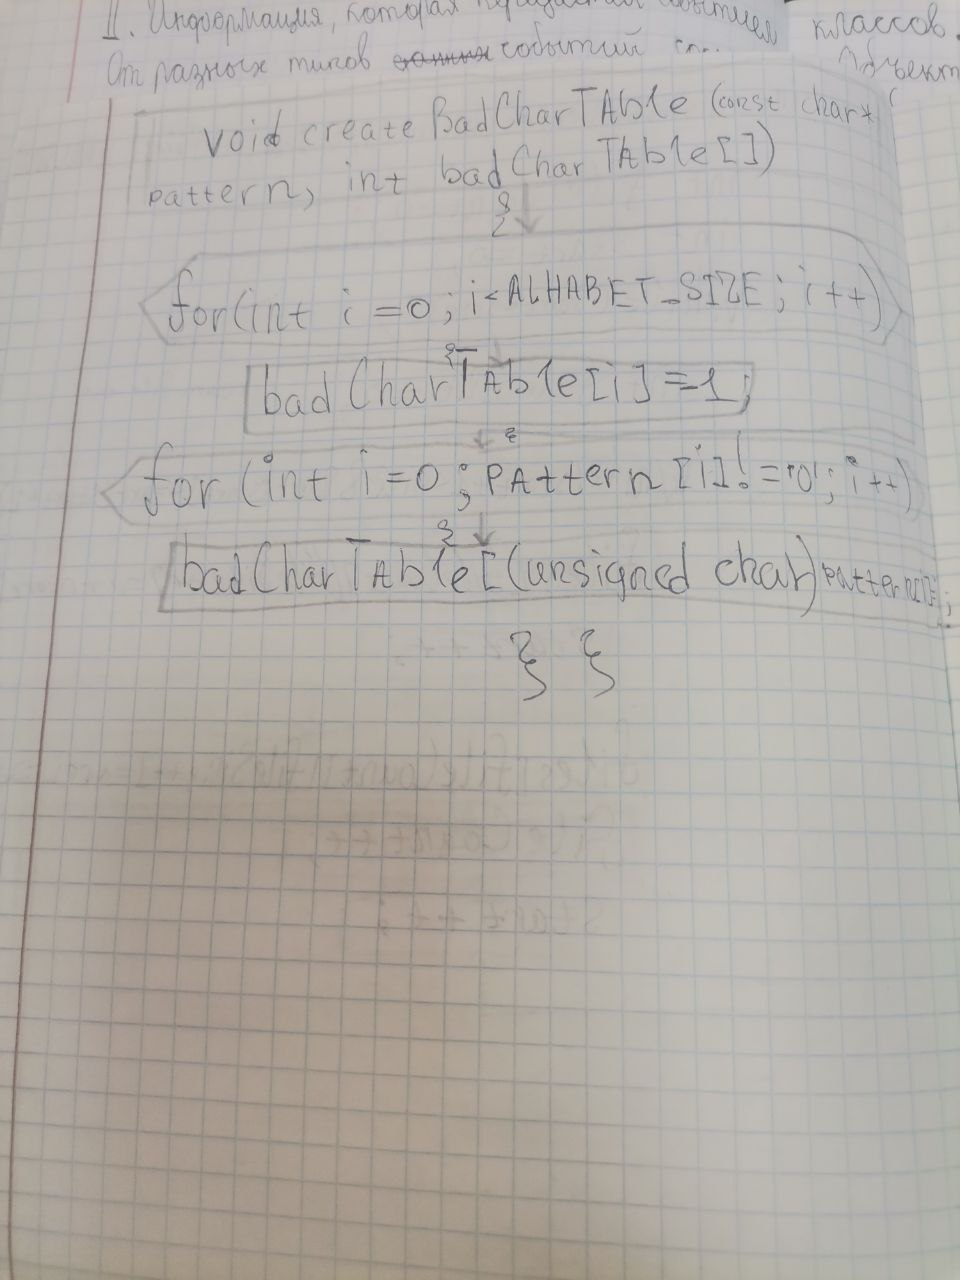 II. Информация, которая классов.
От разных типов событий Объект
void create BadCharTAble (const char*
pattern, int badCharTAble[])
{
for(int i=0; i<ALHABET_SIZE; i++)
{
badCharTAble[i]=1;
{
for (int i=0; PAttern[i]!='0'; i++)
{
badCharTAble[(unsigned char)pattern[i];
} }